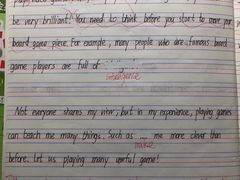 be very brilliant! You need to think before you start to move your
board game piece. For example, many people who are famous board
game players are full of
intelligence
Not everyone shares my view, but in my experience, playing games
can teach me many things. Such as me more clever than
make
before. Let us playing many useful game!